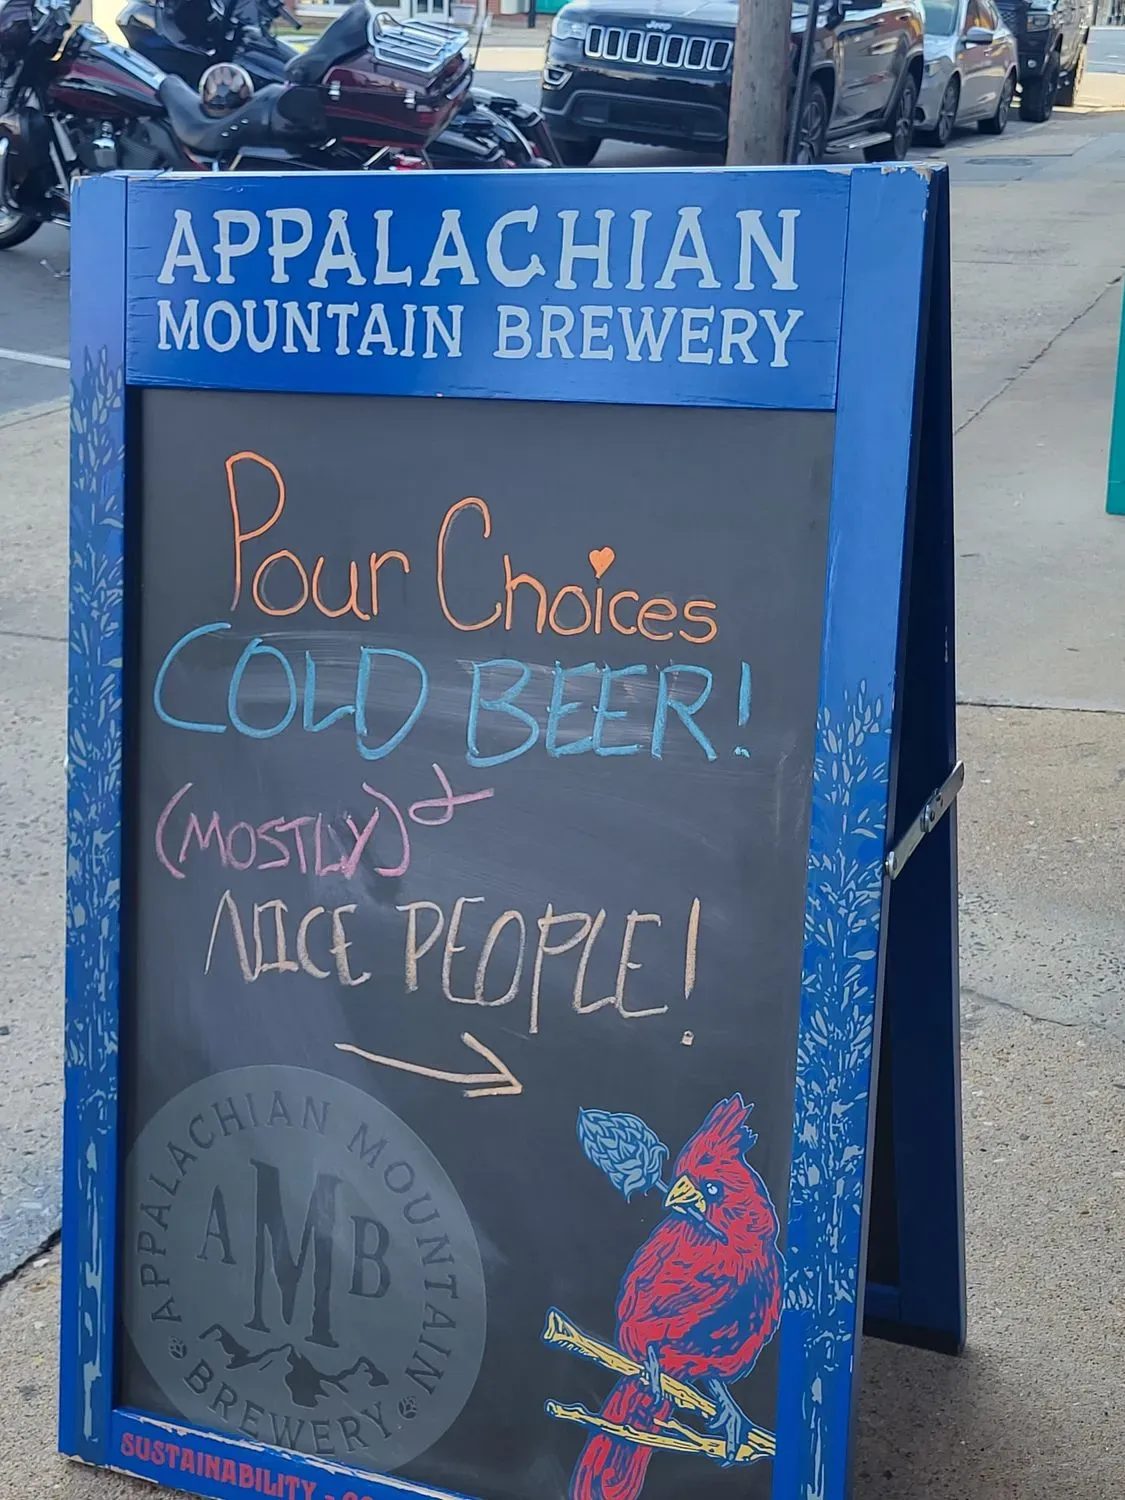 APPALACHIAN
MOUNTAIN BREWERY
Pour Choices
COLD BEER!
(MOSTLY)
NICE PEOPLE!
APPALACHIAN MOUNTAIN
AMB
BREWERY
SUSTAINABILITY -
Jeep